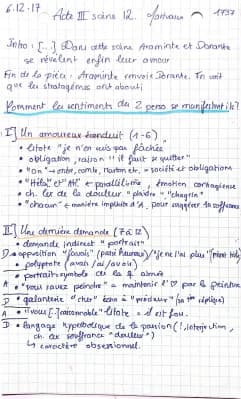 6.12.17 Acte III scène 12. Marivaux 1737
Intro : [...] Dans cette scène Araminte et Dorante
se révèlent enfin leur amour
Fin de la pièce : Araminte renvoie Dorante. On voit
que les stratagèmes ont abouti
Comment les sentiments des 2 perso se manifestent-ils ?
I] Un amoureux (1-6).
• litote "je n'en suis pas fâchée"
• obligation, raison "il faut se quitter"
• "On" → société et obligations
• "Hélas" et "Ah" ← parallélisme, émotion contagieuse
• ch. lex de la douleur "plaidre", "chagrin"
• "chacun" ← manière implicite d'A. pour suggérer sa souffrance
II] Une dernière demande (7 à 12)
• demande indirect "portrait"
D • opposition "j'avais" (passé heureux) / "je ne l'ai plus"
• polyptote (avais / ai / avoir)
• portrait = symbole de la ♀ aimée
A • "vous savez peindre" = maintenir l'♡ par la peinture
D • galanterie "cher" écho à "précieux"
A • "vous [...] raisonnable" litote = il est fou.
D • langage hyperbolique de la passion (!, interjection,
ch. lex souffrance "douleur")
↳ caractère obsessionnel.